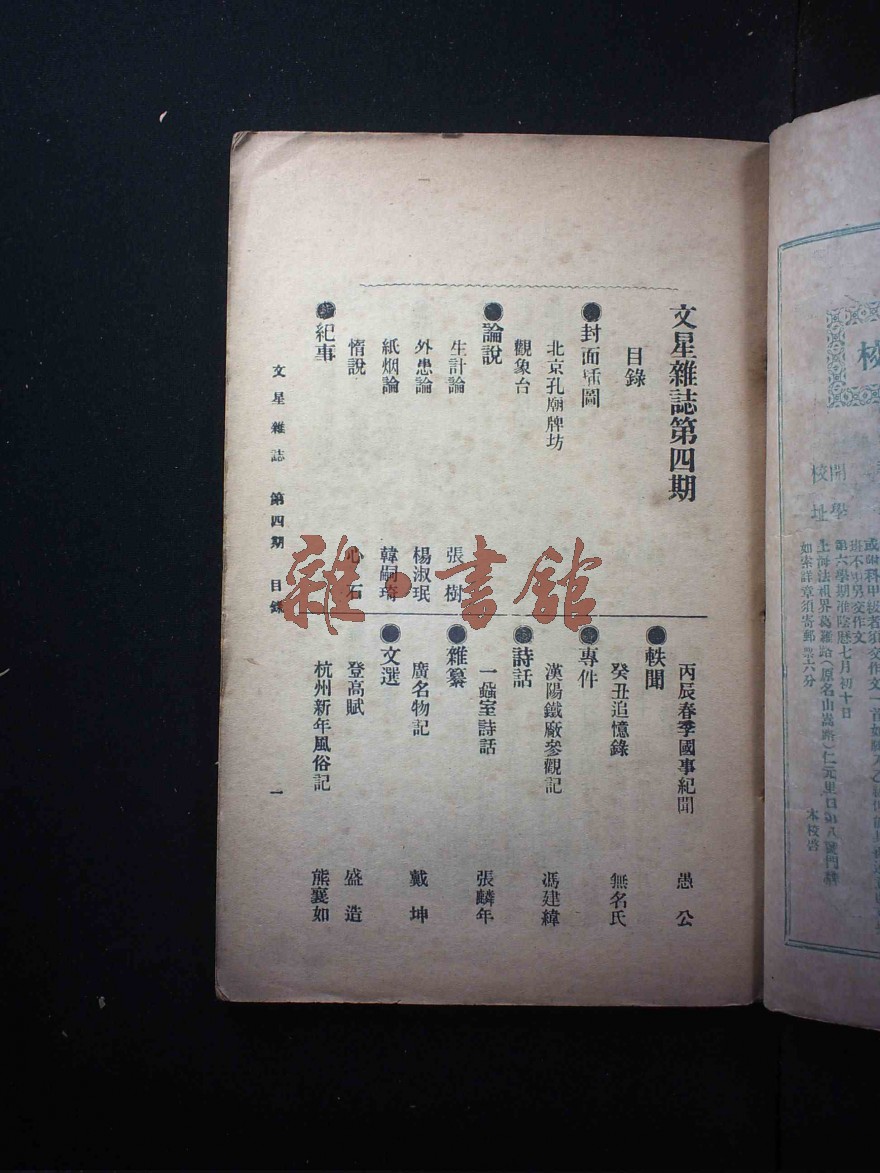 文星雜誌第四期
目錄
●封面插圖
北京孔廟牌坊
觀象台
●論說
生計論 張樹
外患論 楊淑珉
紙烟論 韓嗣琦
惰說 心石
●紀事
丙辰春季國事紀聞 愚公
●軼聞
癸丑追憶錄 無名氏
●專件
漢陽鐵廠參觀記 馮建緯
●詩話
一蝨室詩話 張麟年
●雜纂
廣名物記 戴坤
●文選
登高賦 盛造
杭州新年風俗記 熊襄如
文星雜誌 第四期 目錄 一
雜·書館
校
開學
校址
班不另交作文
第六學期准陰歷七月初十日
上海法租界葛羅路(原名山嵩路)仁元里口第八號門牌
如索詳章須寄郵票六分
本校啓